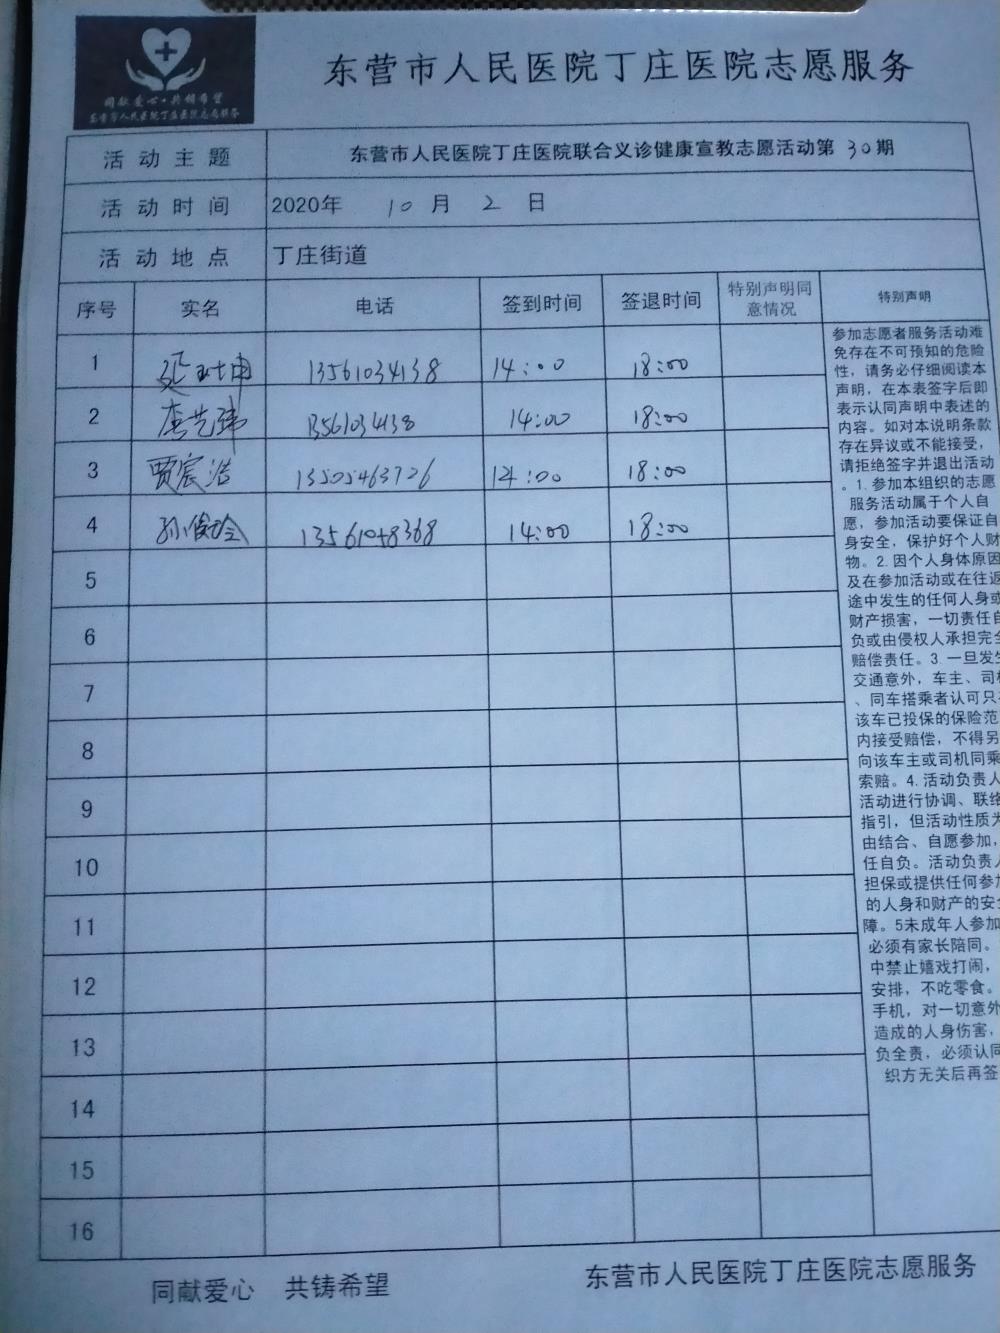 同献爱心·共铸希望
东营市人民医院丁庄医院志愿服务
东营市人民医院丁庄医院志愿服务
活动主题 东营市人民医院丁庄医院联合义诊健康宣教志愿活动第30期
活动时间 2020年 10 月 2 日
活动地点 丁庄街道
序号 实名 电话 签到时间 签退时间 特别声明同意情况 特别声明
1 13561034138 14:00 18:00
2 李艺玮 13561034138 14:00 18:00
3 贾宸浩 13505463726 14:00 18:00
4 孙俊玲 13561058368 14:00 18:00
5
6
7
8
9
10
11
12
13
14
15
16
参加志愿者服务活动难
免存在不可预知的危险
性，请务必仔细阅读本
声明，在本表签字后即
表示认同声明中表述的
内容。如对本说明条款
存在异议或不能接受，
请拒绝签字并退出活动
。1.参加本组织的志愿
服务活动属于个人自
愿，参加活动要保证自
身安全，保护好个人财
物。2.因个人身体原因
及在参加活动或在往返
途中发生的任何人身或
财产损害，一切责任自
负或由侵权人承担完全
赔偿责任。3.一旦发生
交通意外，车主、司机
、同车搭乘者认可只在
该车已投保的保险范
内接受赔偿，不得另
向该车主或司机同乘
索赔。4.活动负责人
活动进行协调、联络
指引，但活动性质为
由结合、自愿参加，
任自负。活动负责人
担保或提供任何参加
的人身和财产的安全
障。5未成年人参加
必须有家长陪同。
中禁止嬉戏打闹，
安排，不吃零食。
手机，对一切意外
造成的人身伤害，
负全责，必须认同
织方无关后再签
同献爱心 共铸希望
东营市人民医院丁庄医院志愿服务